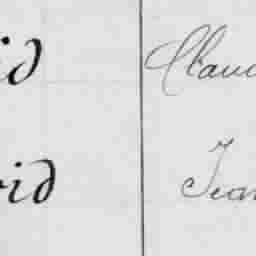 id Clauc
rid Jean